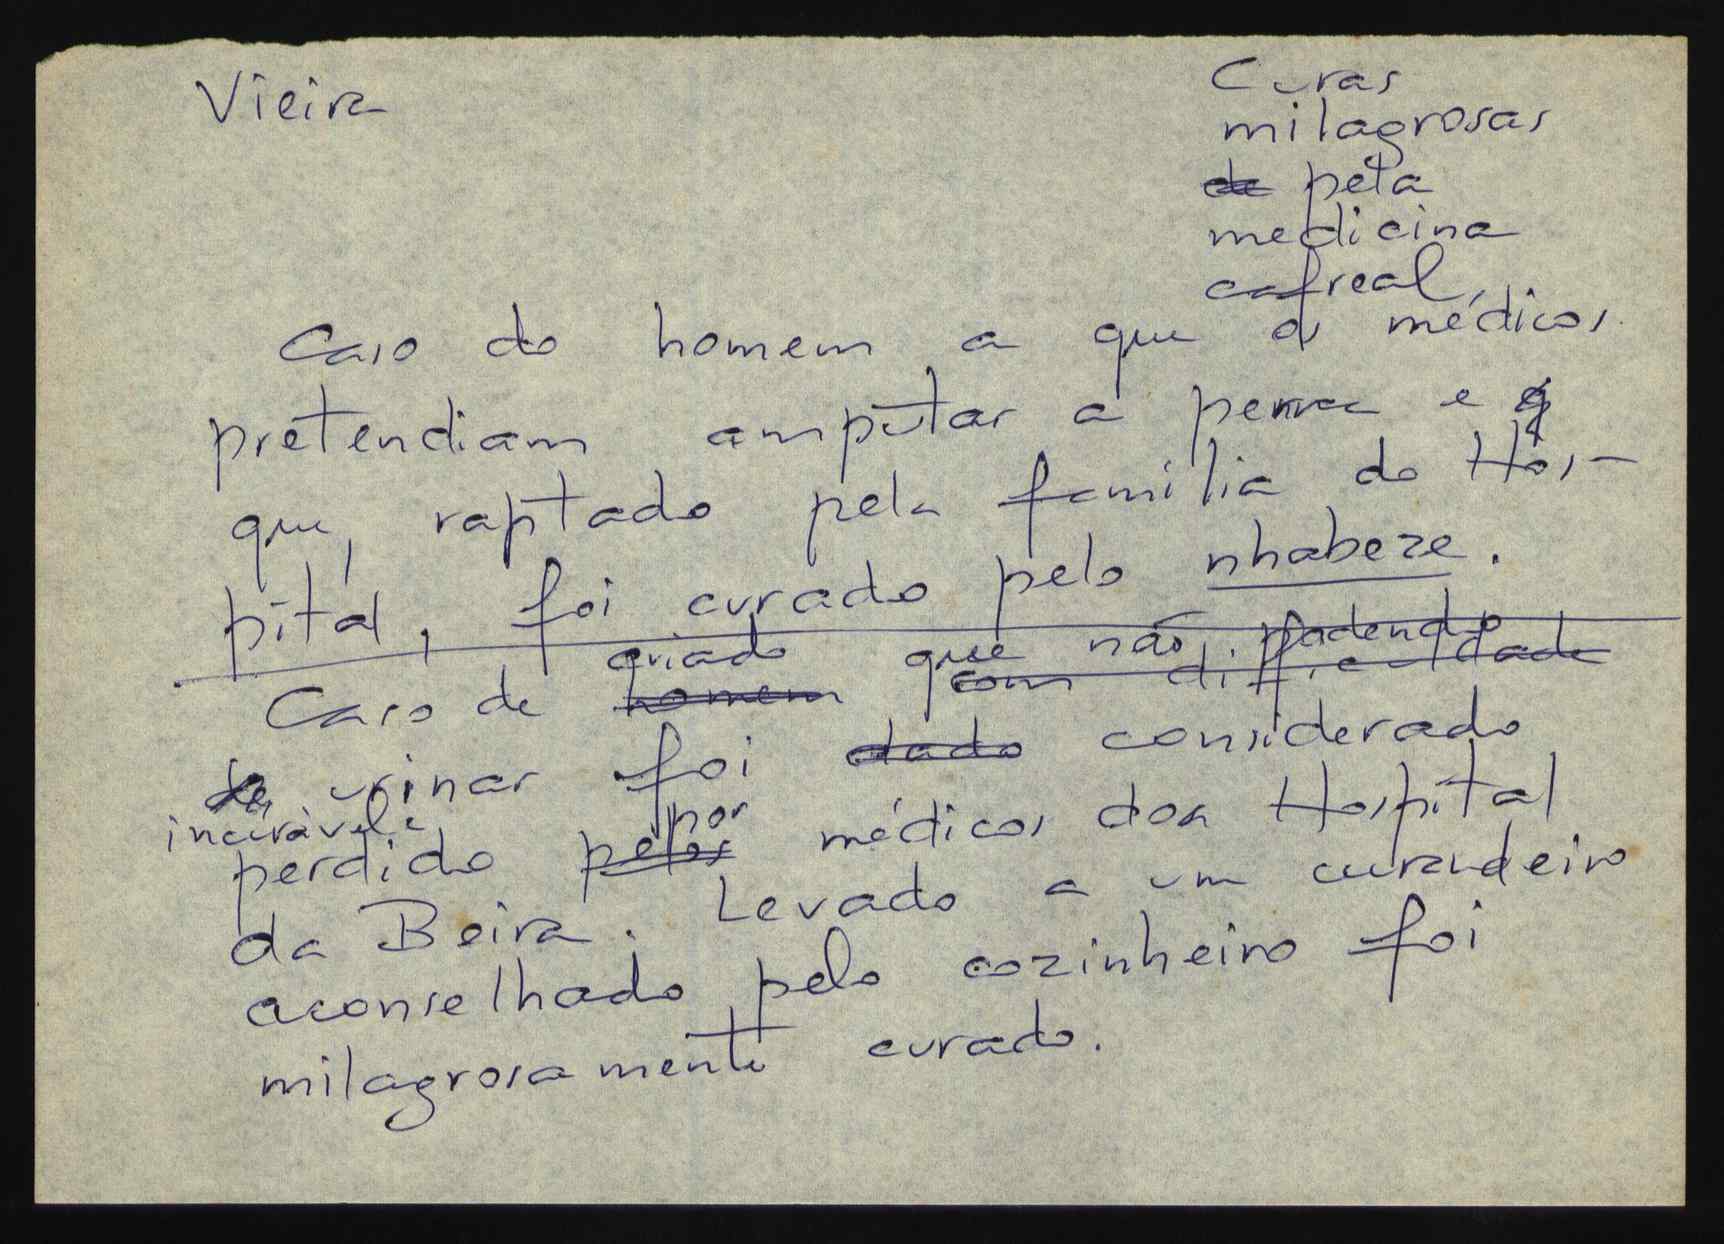 Vieira
Curas
milagrosas
de pela
medicina
cafreal.
Caso do homem a que os médicos
pretendiam amputar a perna e q
que, raptado pela família do Hos-
pital, foi curado pelo nhabeze.
criado que não podendo
Caso de homem com dificuldade
de urinar foi dado considerado
incurável e por
perdido pelos médicos don Hospital
da Beira. Levado a um curandeiro
aconselhado pelo cozinheiro foi
milagrosamente curado.